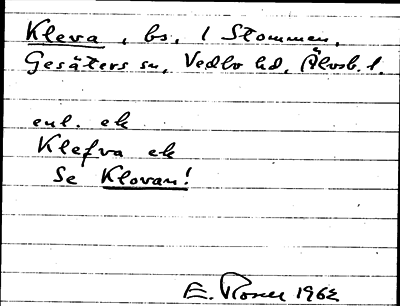 Kleva, bs, 1 Stommen,
Gesäters sn, Vedbo hd, Älvsb. l.
enl. ek
Klefva ek
Se Klovan!
E. Rosell 1962